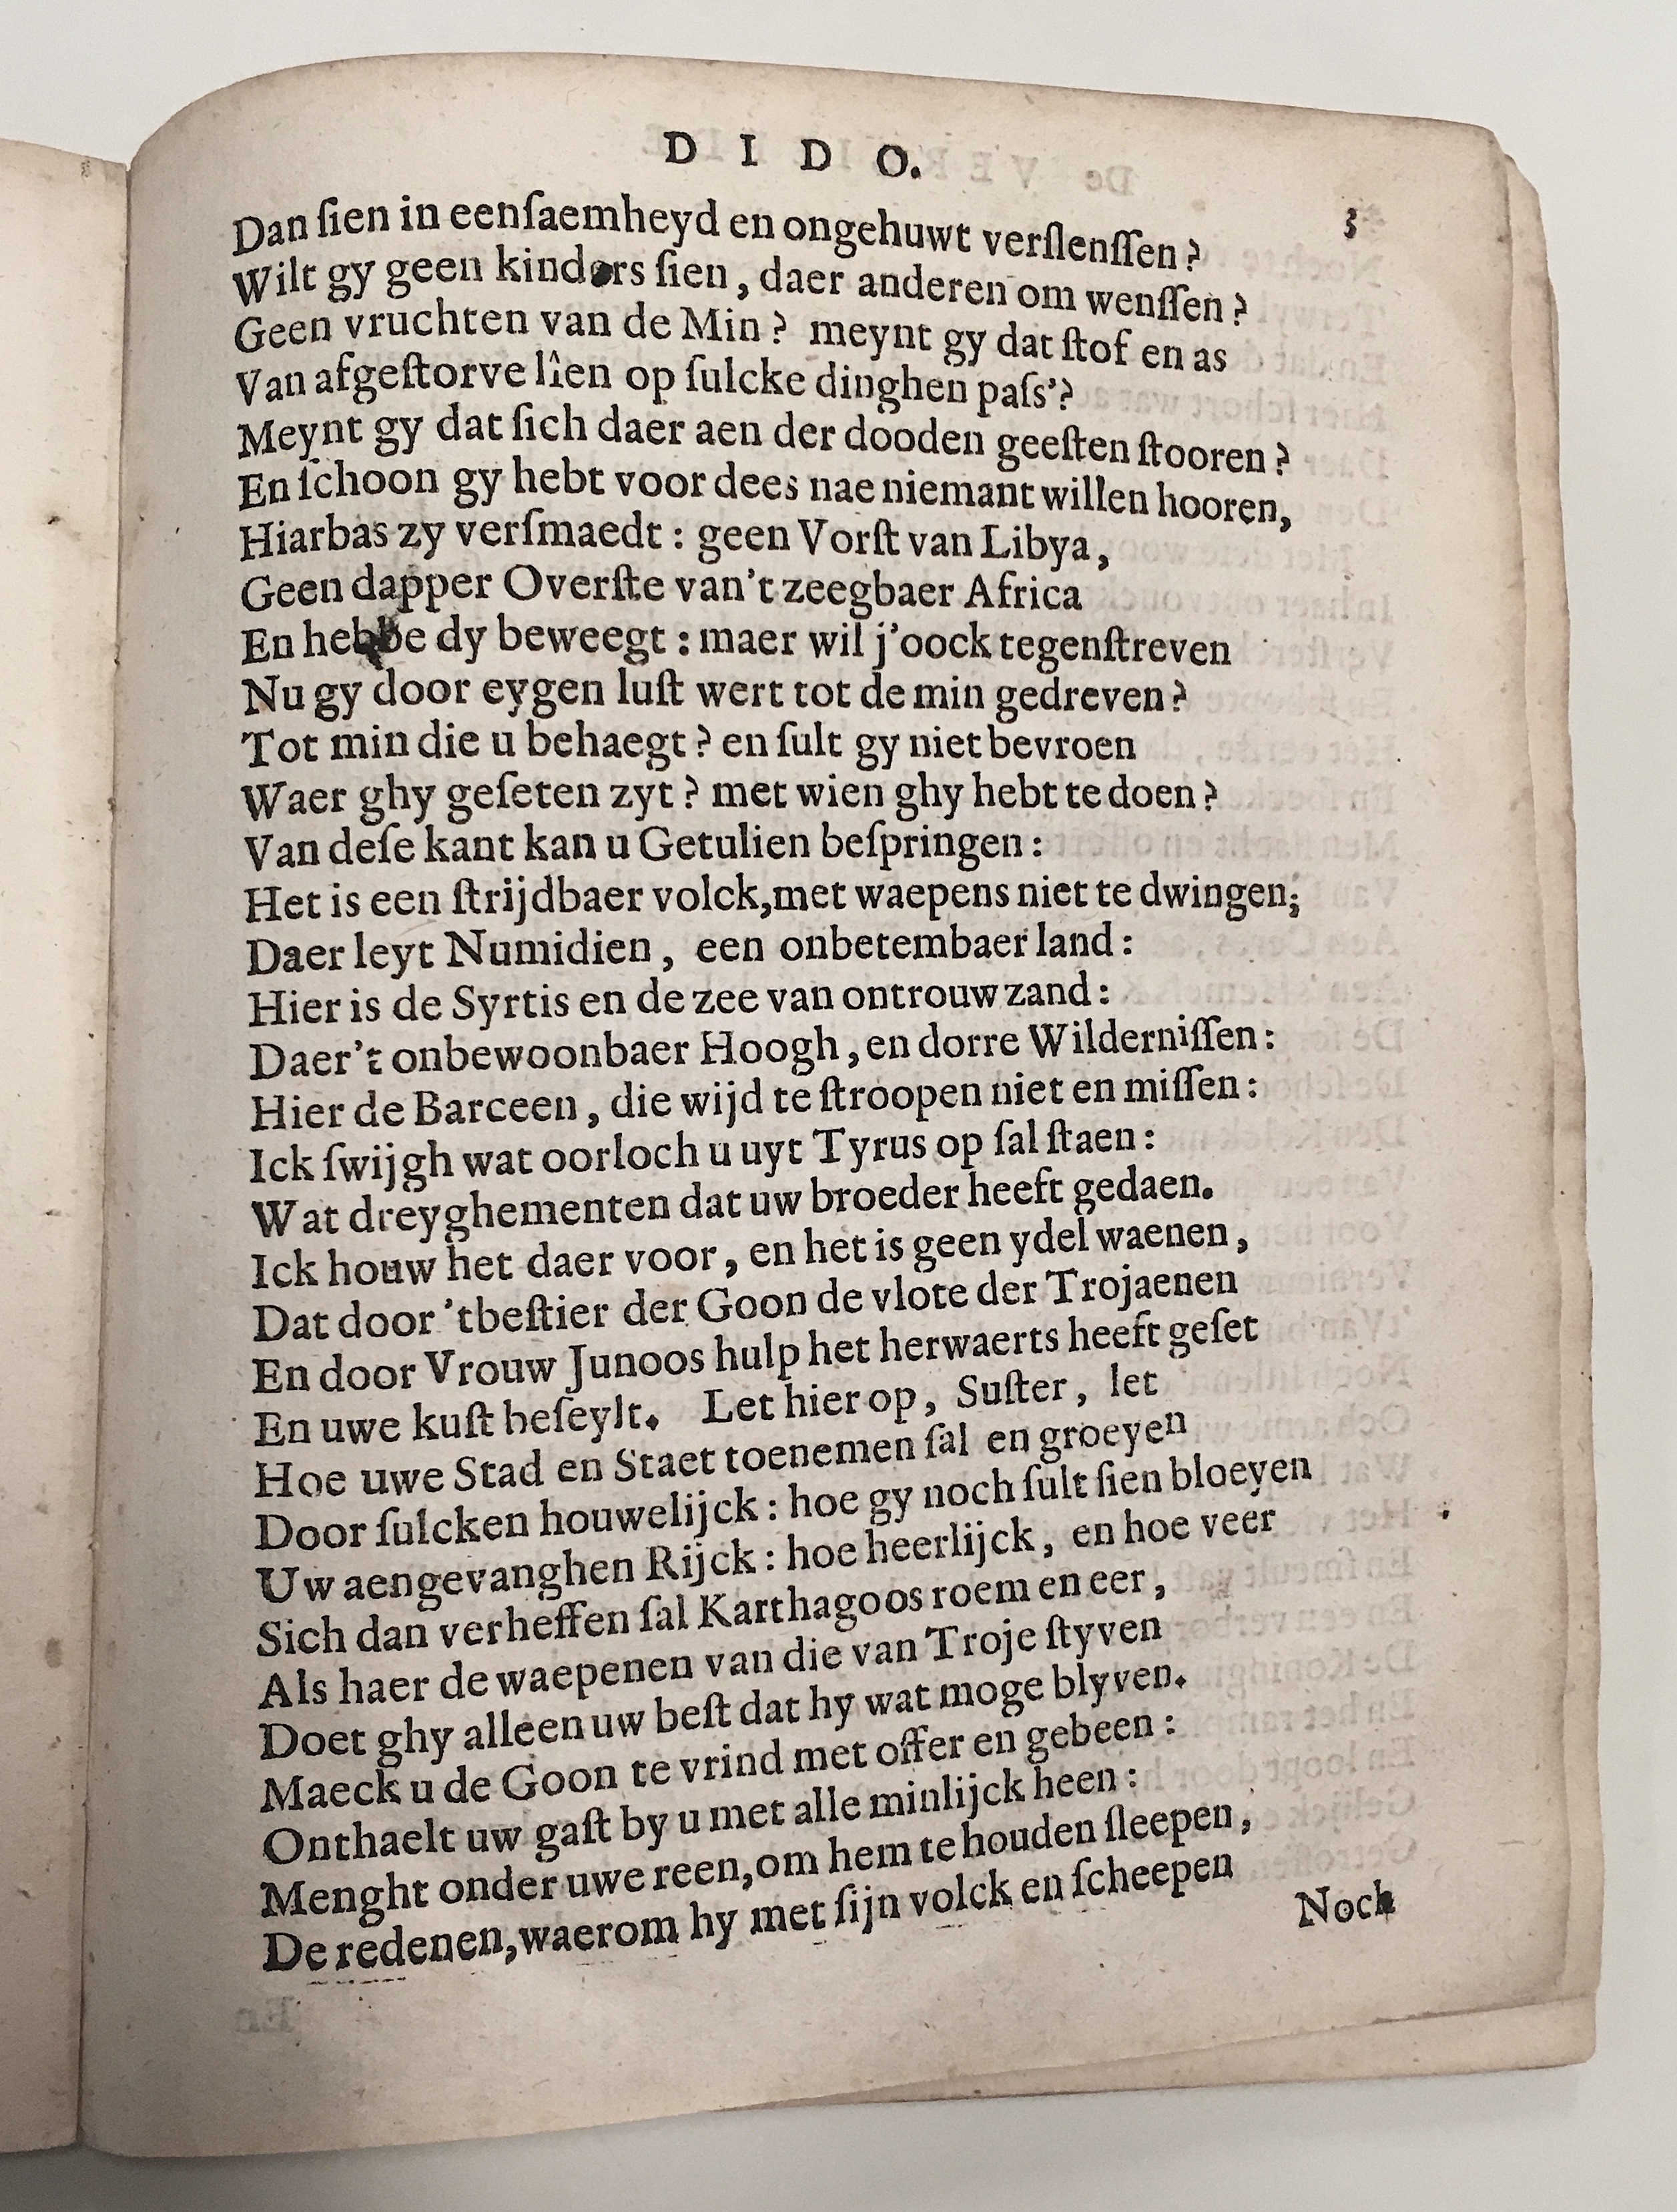 D I D O.
3
Dan ſien in eenſaemheyd en ongehuwt verſlenſſen?
Wilt gy geen kinders ſien, daer anderen om wenſſen?
Geen vruchten van de Min? meynt gy dat ſtof en as
Van afgeſtorve lîen op ſulcke dinghen paſs'?
Meynt gy dat ſich daer aen der dooden geeſten ſtooren?
En ſchoon gy hebt voor dees nae niemant willen hooren,
Hiarbas zy verſmaedt: geen Vorſt van Libya,
Geen dapper Overſte van't zeegbaer Africa
En hebbe dy beweegt: maer wil j'oock tegenſtreven
Nu gy door eygen luſt wert tot de min gedreven?
Tot min die u behaegt? en ſult gy niet bevroen
Waer ghy geſeten zyt? met wien ghy hebt te doen?
Van deſe kant kan u Getulien beſpringen:
Het is een ſtrijdbaer volck,met waepens niet te dwingen;
Daer leyt Numidien, een onbetembaer land:
Hier is de Syrtis en de zee van ontrouw zand:
Daer't onbewoonbaer Hoogh, en dorre Wilderniſſen:
Hier de Barceen, die wijd te ſtroopen niet en miſſen:
Ick ſwijgh wat oorloch u uyt Tyrus op ſal ſtaen:
Wat dreyghementen dat uw broeder heeft gedaen.
Ick houw het daer voor, en het is geen ydel waenen,
Dat door 'tbeſtier der Goon de vlote der Trojaenen
En door Vrouw Junoos hulp het herwaerts heeft geſet
En uwe kuſt beſeylt. Let hier op, Suſter, let
Hoe uwe Stad en Staet toenemen ſal en groeyen
Door ſulcken houwelijck: hoe gy noch ſult ſien bloeyen
Uw aengevanghen Rijck: hoe heerlijck, en hoe veer
Sich dan verheffen ſal Karthagoos roem en eer,
Als haer de waepenen van die van Troje ſtyven
Doet ghy alleen uw beſt dat hy wat moge blyven.
Maeck u de Goon te vrind met offer en gebeen:
Onthaelt uw gaſt by u met alle minlijck heen:
Menght onder uwe reen,om hem te houden ſleepen,
De redenen,waerom hy met ſijn volck en ſcheepen
Noch